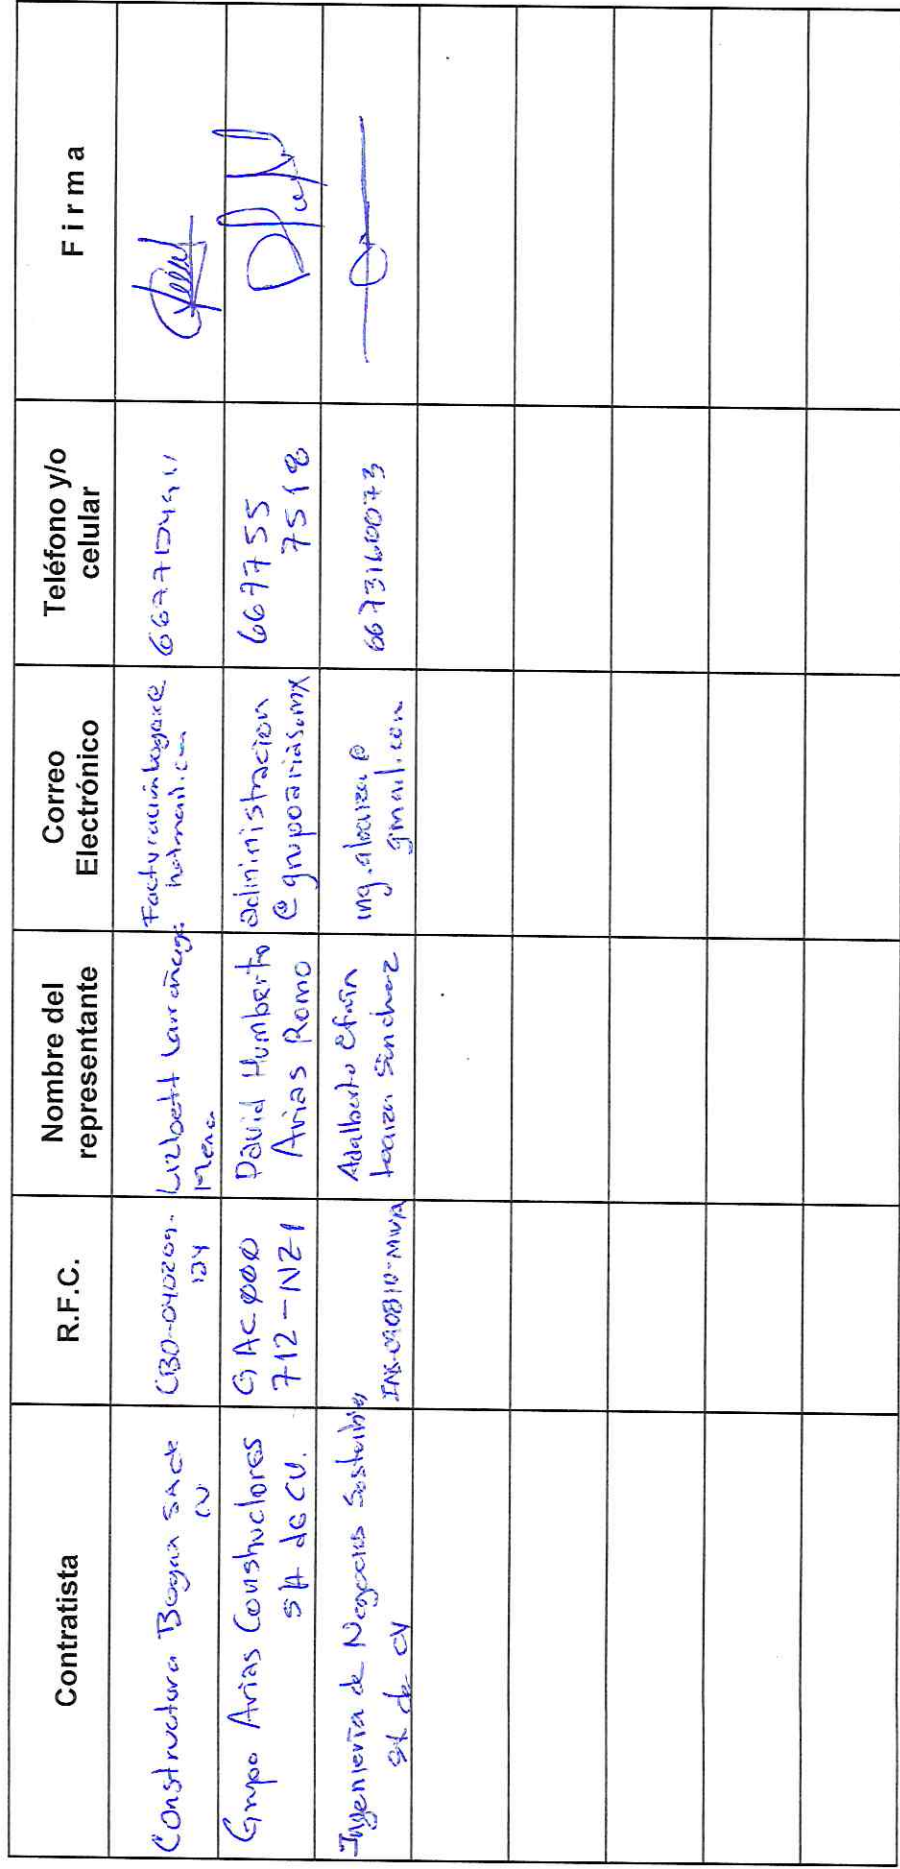 Contratista
R.F.C.
Nombre del
representante
Correo
Electrónico
Teléfono y/o
celular
Firma
Constructora Bogax SA de
CV
CBO-040209-
Lizbett Larrañaga
Mena
hotmail.com
Grupo Arias Constructores
SA de CV.
GAC000
712-NZ1
David Humberto
Arias Romo
administracion
@grupoarias.mx
667755
7518
Ingeniería de Negocios Sostenibles
SA de CV
Adalberto Efraín
Loaiza Sánchez
ing.aloaiza@
gmail.com